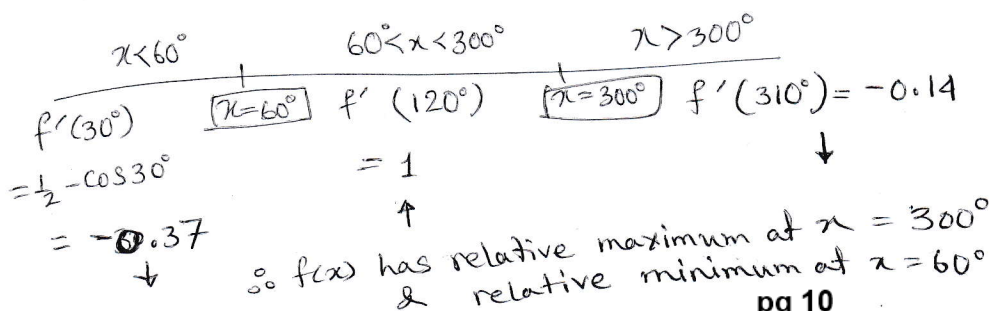 x<60° 60°<x<300° x>300°
f'(30°) x=60° f'(120°) x=300° f'(310°) = -0.14
= 1/2 - cos30° = 1 ↓
= -0.37 ↑
↓ ∴ f(x) has relative maximum at x = 300°
& relative minimum at x = 60°
pg 10